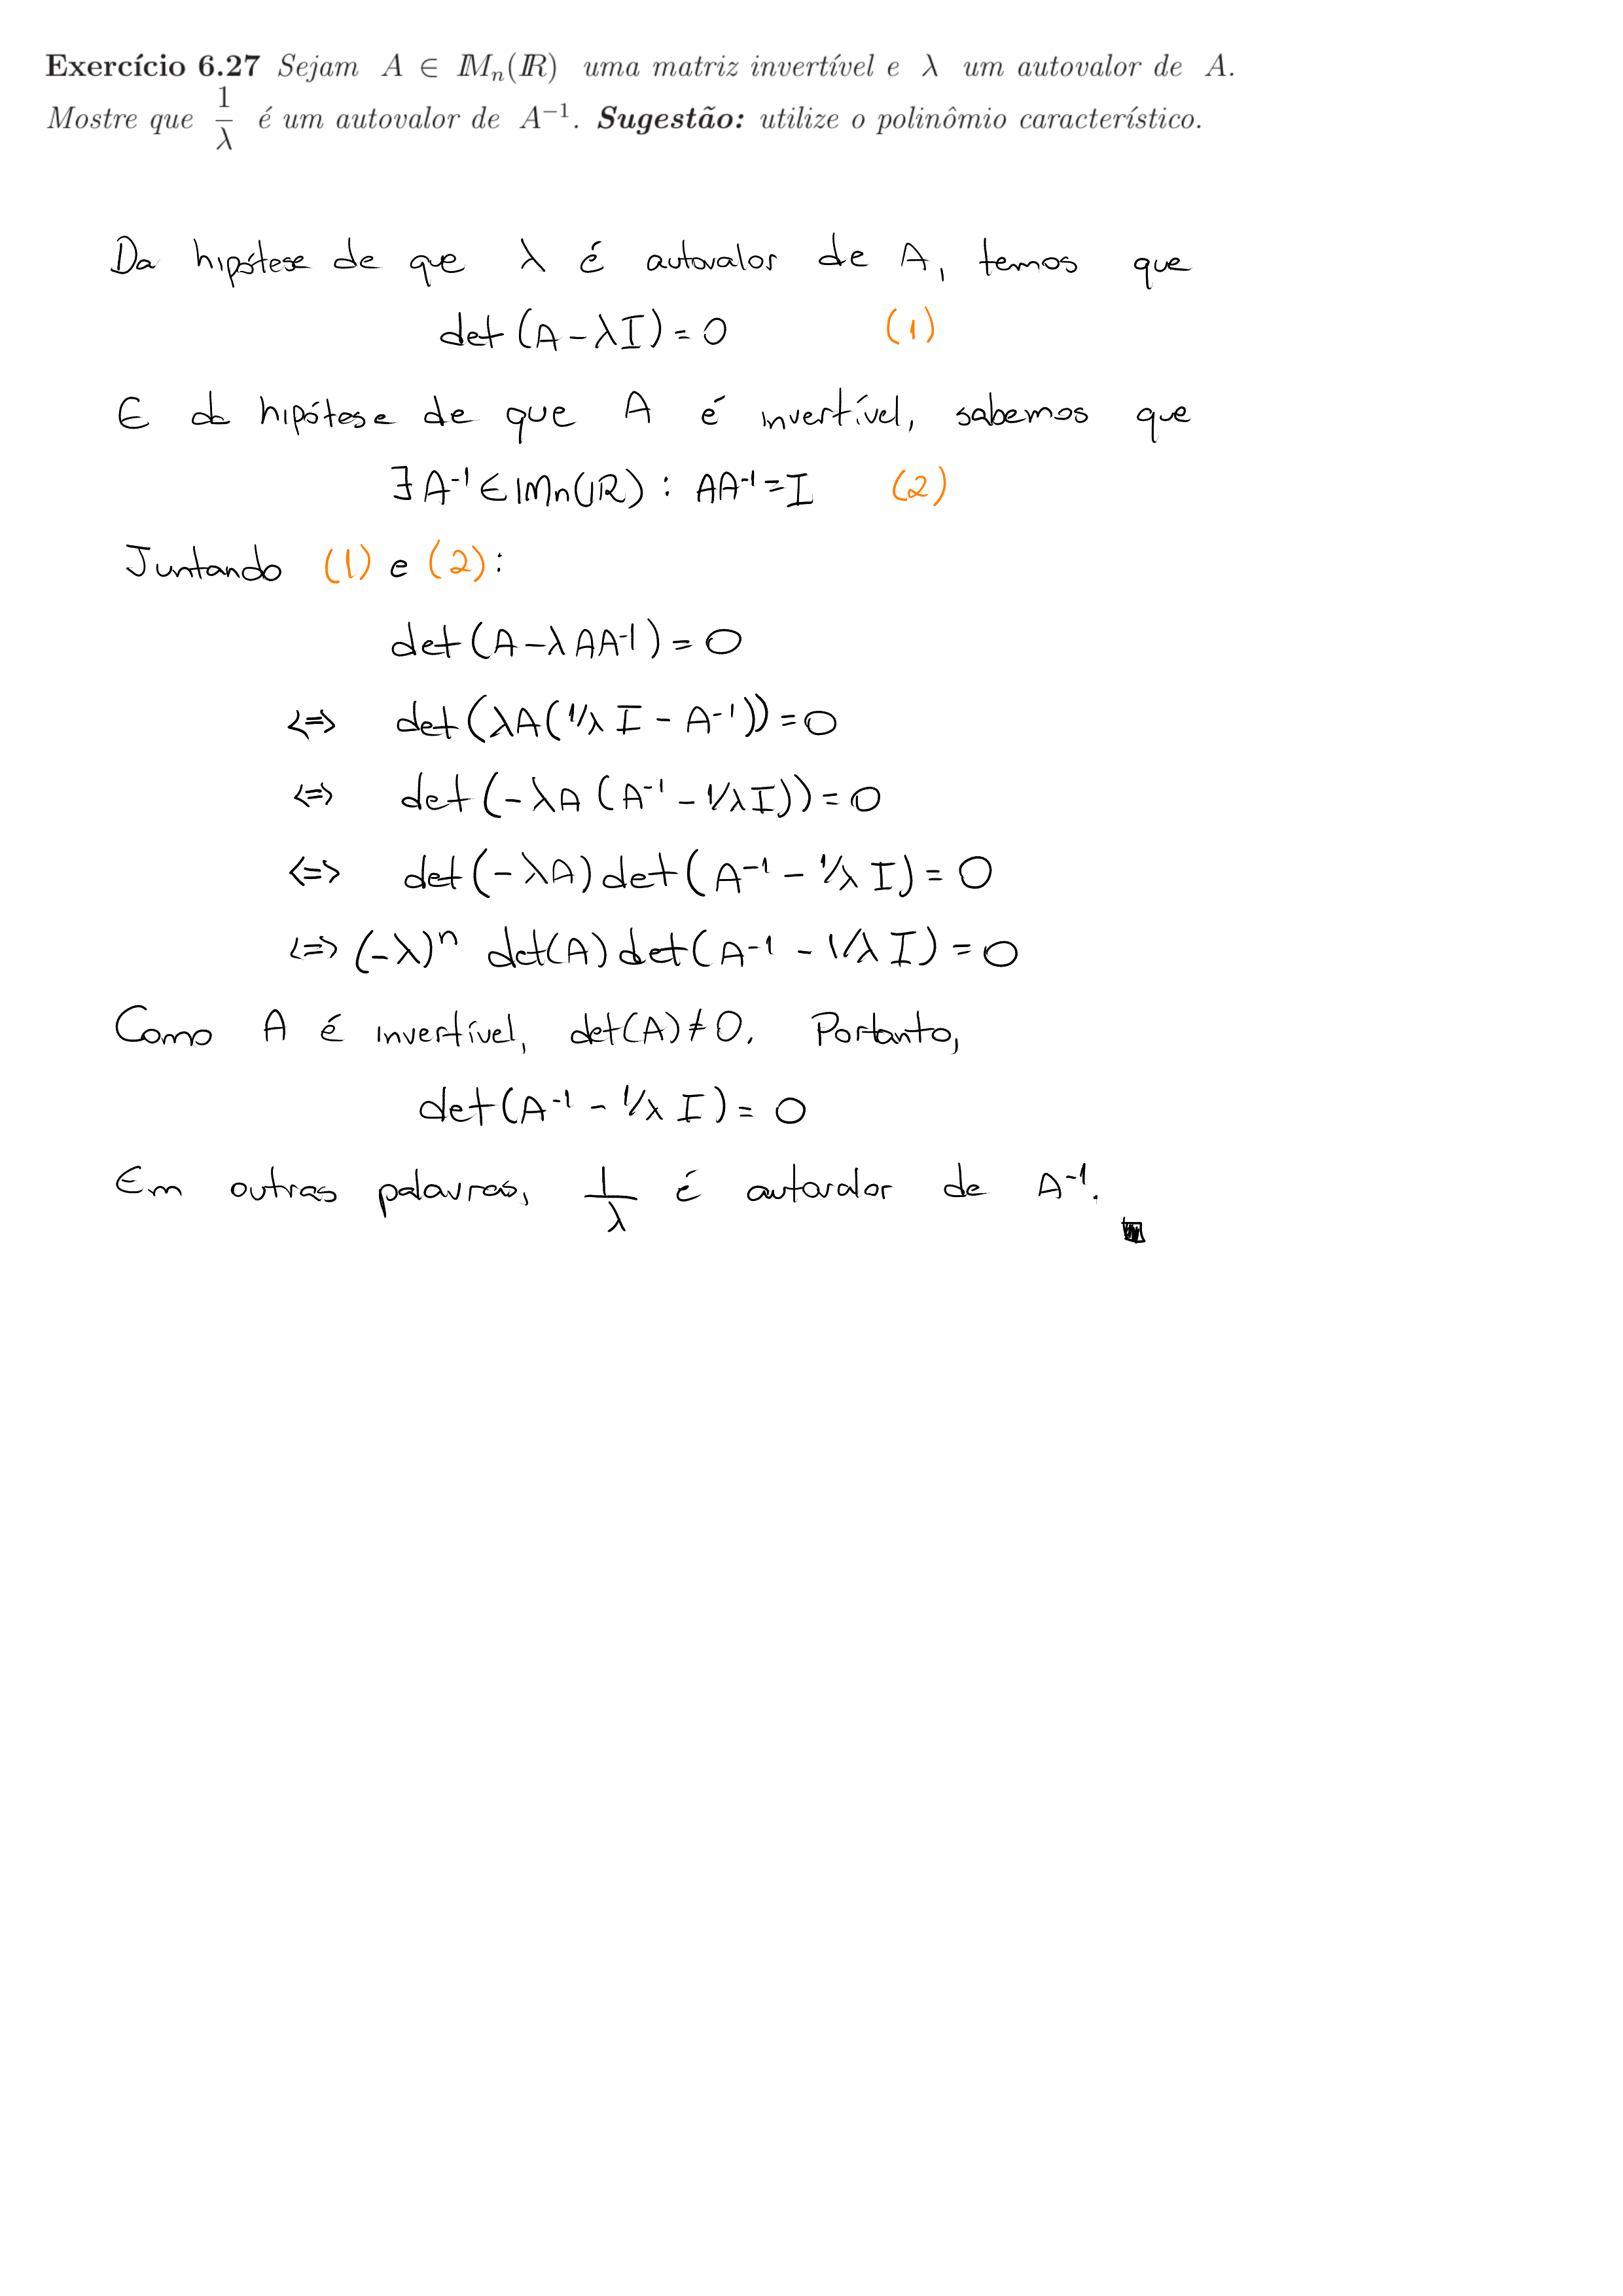 Exercício 6.27 Sejam A ∈ IMₙ(IR) uma matriz invertível e λ um autovalor de A.
Mostre que 1/λ é um autovalor de A⁻¹. Sugestão: utilize o polinômio característico.
Da hipótese de que λ é autovalor de A, temos que
det(A - λI) = 0 (1)
E da hipótese de que A é invertível, sabemos que
∃ A⁻¹ ∈ IMn(IR) : AA⁻¹ = I (2)
Juntando (1) e (2):
det(A - λAA⁻¹) = 0
<=> det(λA(1/λ I - A⁻¹)) = 0
<=> det(-λA(A⁻¹ - 1/λ I)) = 0
<=> det(-λA) det(A⁻¹ - 1/λ I) = 0
<=> (-λ)ⁿ det(A) det(A⁻¹ - 1/λ I) = 0
Como A é invertível, det(A) ≠ 0. Portanto,
det(A⁻¹ - 1/λ I) = 0
Em outras palavras, 1/λ é autovalor de A⁻¹.